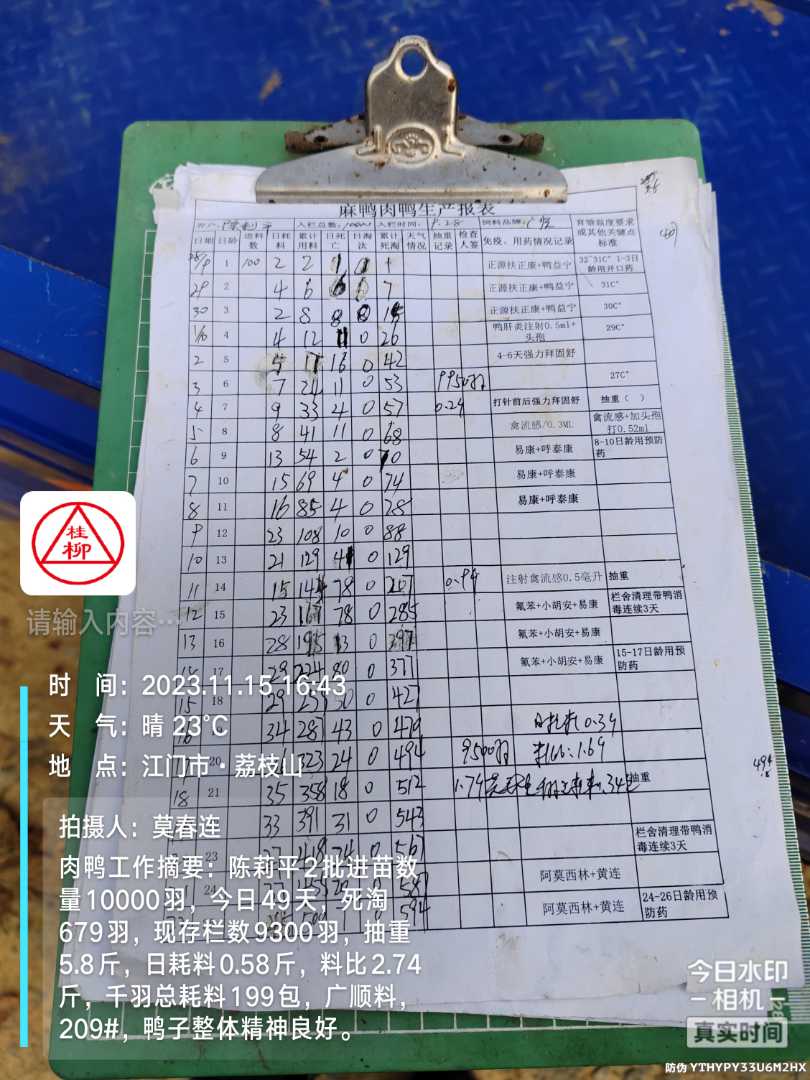 麻鸭肉鸭生产报表
客户: 入栏总数: 入栏时间: 饲料品牌: 育雏温度要求或其他关键点标准
日期 日龄 进料数 日耗料 累计用料 日死亡 日淘汰 累计死淘 天气情况 抽重记录 检查人签 免疫、用药情况记录
1 100 2 2 正源扶正康+鸭益宁 32~31C° 1-3日龄用开口药
29 2 4 6 6 7 正源扶正康+鸭益宁 31C°
30 3 2 8 8 0 15 正源扶正康+鸭益宁 30C°
4 4 12 11 0 26 鸭肝炎注射0.5ml+头孢 29C°
2 5 5 17 16 0 42 4-6天强力拜固舒
3 6 7 24 11 0 53 9950羽 27C°
4 7 9 33 4 0 57 0.29 打针前后强力拜固舒 抽重( )
5 8 8 41 11 0 68 禽流感/0.3ML 禽流感+加头孢打0.52ml
6 9 13 54 2 0 70 易康+呼泰康 8-10日龄用预防药
7 10 15 69 4 0 74 易康+呼泰康
8 11 16 85 4 0 易康+呼泰康
9 12 23 108 10 0 88
10 13 21 129 41 0 129
11 14 15 144 78 0 207 注射禽流感0.5毫升 抽重
12 15 23 167 78 0 285 氟苯+小胡安+易康 栏舍清理带鸭消毒连续3天
13 16 28 195 0 297 氟苯+小胡安+易康
17 29 224 80 0 377 氟苯+小胡安+易康 15-17日龄用预防药
15 18 29 0 427
34 287 43 0 479
20 323 24 0 494 9500羽 料比:1.69
18 21 35 358 18 0 512 抽重
33 391 31 0 543
23 0 567 栏舍清理带鸭消毒连续3天
24 阿莫西林+黄连
594 阿莫西林+黄连 24-26日龄用预防药
桂柳
请输入内容···
时 间:2023.11.15 16:43
天 气:晴 23℃
地 点:江门市·荔枝山
拍摄人:莫春连
肉鸭工作摘要:陈莉平2批进苗数
量10000羽,今日49天,死淘
679羽,现存栏数9300羽,抽重
5.8斤,日耗料0.58斤,料比2.74
斤,千羽总耗料199包,广顺料,
209#,鸭子整体精神良好。
今日水印
-相机
真实时间
防伪 YTHYPY33U6M2HX